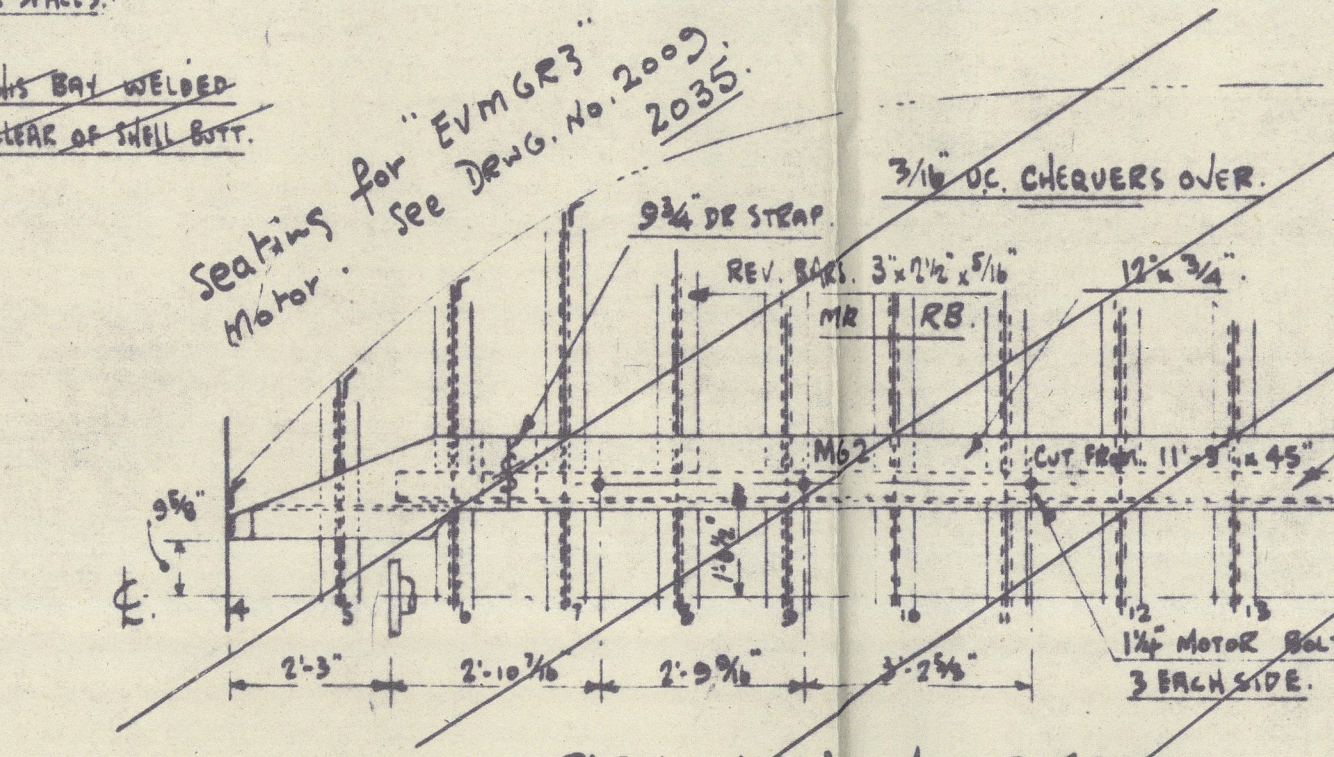 HIS BAY WELDED
CLEAR OF SHELL BUTT.
Seating for "EVMGR3"
Motor. See DRWG. No. 2009
2035.
3/16" U.C. CHEQUERS OVER.
9¾" DR STRAP.
REV. BARS. 3" x 2½" x 5/16"
12" x 3/4".
MR RB.
M62
CUT FROM 11'-9" x 45"
9⅝"
1'-6½"
℄.
4 5 6 7 8 9 10 11 12 13
2'-3" 2'-10 7/16" 2'-9 9/16" 3'-2⅝"
1¼" MOTOR BOLT
3 EACH SIDE.